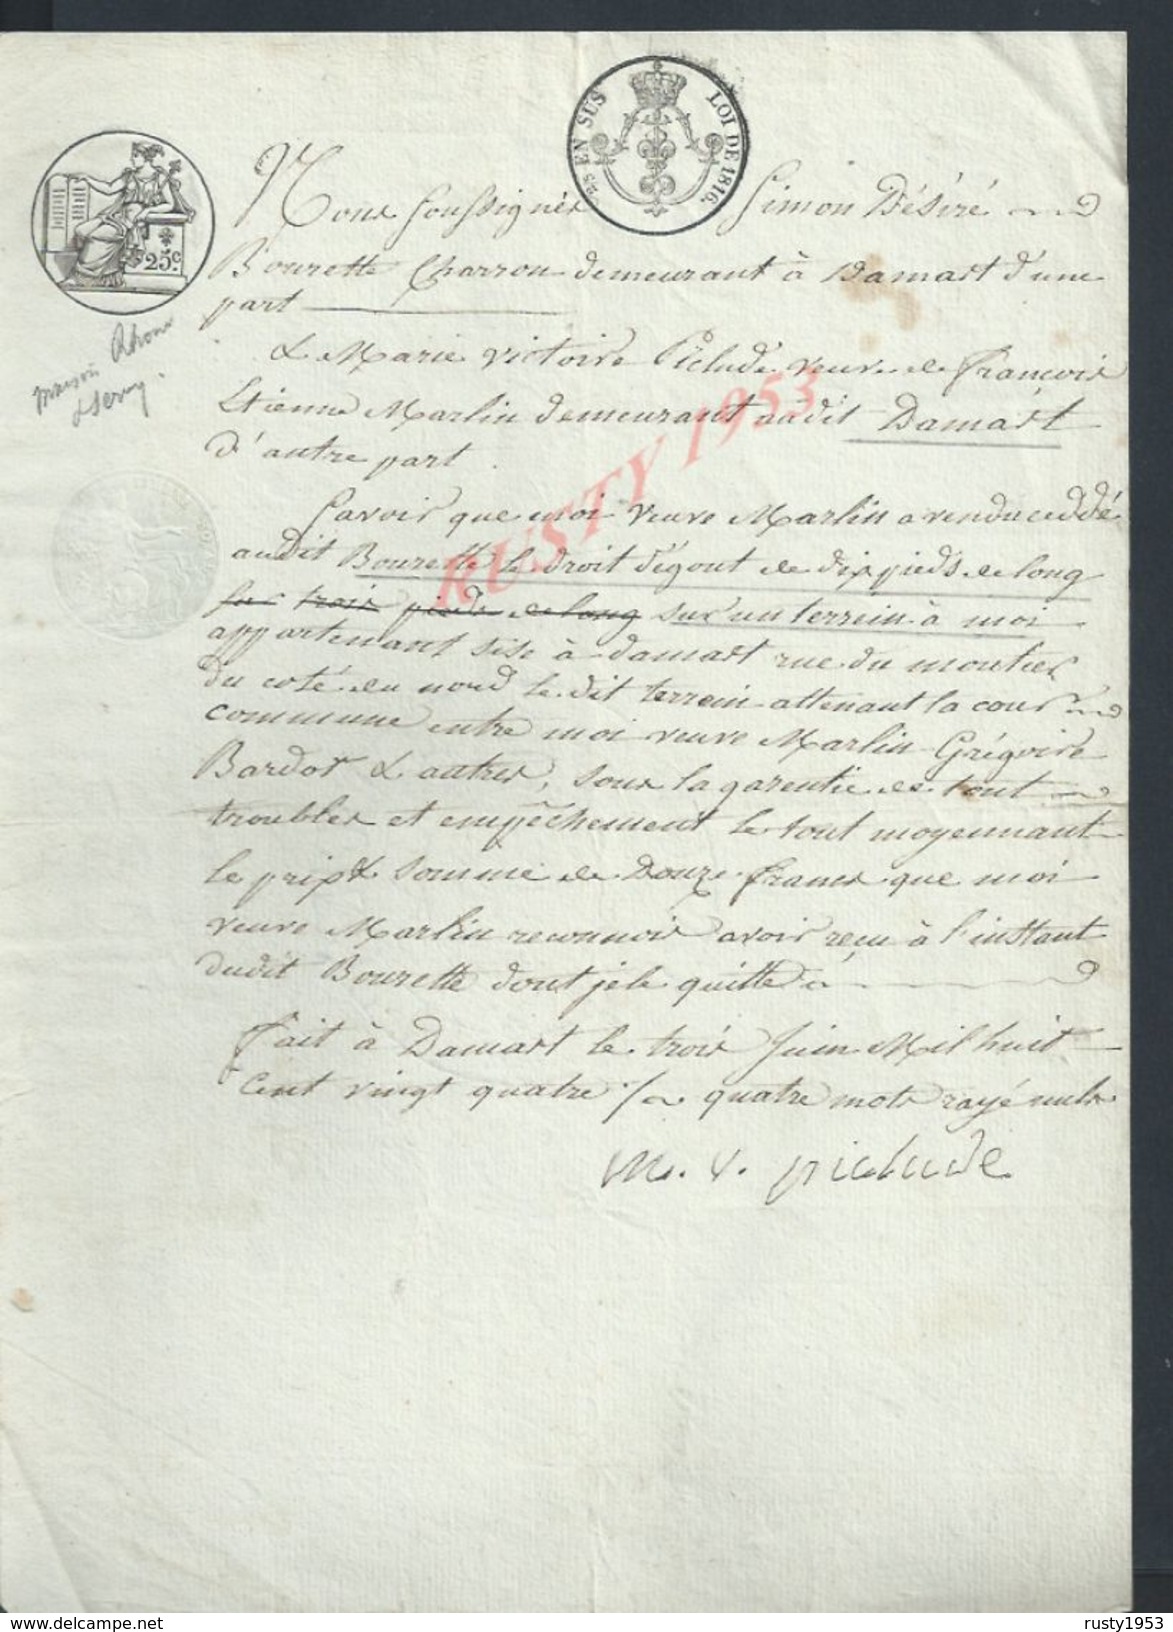 25 EN SUS LOI DE 1816.
25c.
Nous soussignés Simon Désiré
Bourette Charron demeurant à Damart d'une
part
& Marie victoire Piclude veuve de francois
Etienne Marlin demeurant audit Damart
d'autre part.
Savoir que moi veuve Marlin a vendu ceddé
audit Bourette le droit d'égout de dix pieds de long
sur trois pieds de long sur un terrein à moi
appartenant sise à damart rue du moutier
du coté du nord le dit terrein attenant la cour
commune entre moi veuve Marlin Grégoire
Bardot & autres, sous la garentie de tout
troubles et empêchement le tout moyennant
le prix & somme de Douze francs que moi
veuve Marlin reconnois avoir reçu à l'instant
dudit Bourette dont je le quitte
fait à Damart le trois Juin Mil huit
cent vingt quatre /. quatre mots rayé nuls
m. v. piclude
maison
RUSTY 1953
http://www.delcampe.net
rusty1953